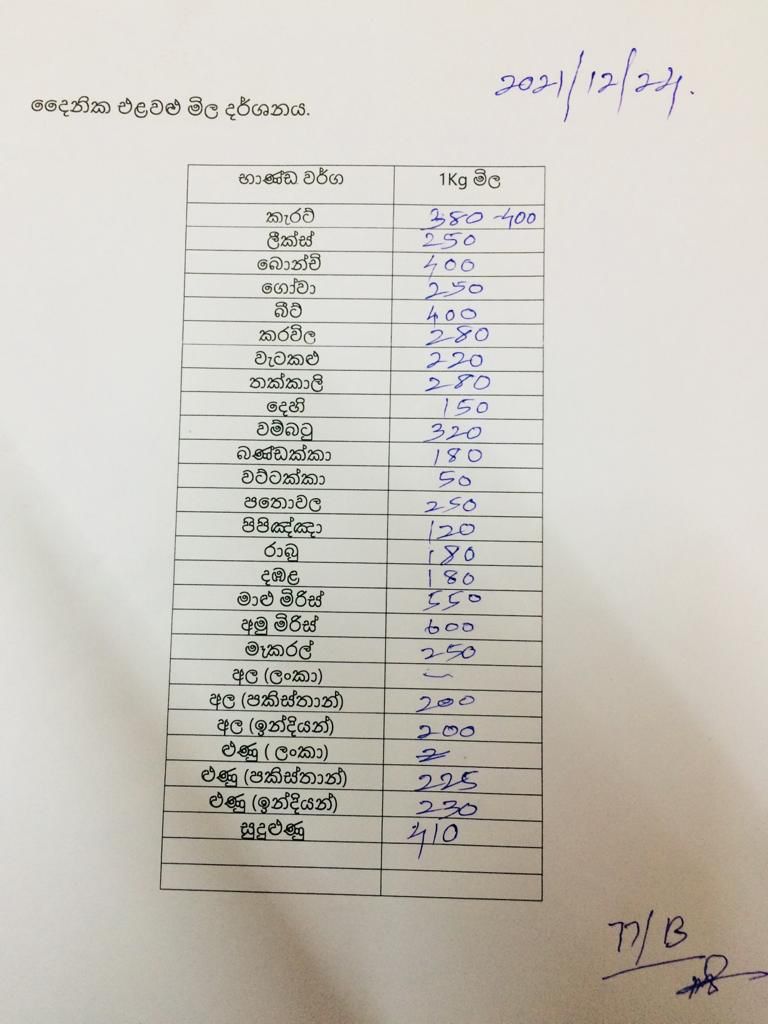 2021/12/24.
දෛනික එළවළු මිල දර්ශනය.
භාණ්ඩ වර්ග 1Kg මිල
කැරට් 380-400
ලීක්ස් 250
බොන්චි 400
ගෝවා 250
බීට් 400
කරවිල 280
වැටකළු 220
තක්කාලි 280
දෙහි 150
වම්බටු 320
බණ්ඩක්කා 180
වට්ටක්කා 50
පතොවල 250
පිපිඤ්ඤා 120
රාබු 180
දඹළ 180
මාළු මිරිස් 550
අමු මිරිස් 600
මෑකරල් 250
අල (ලංකා) –
අල (පකිස්තාන්) 200
අල (ඉන්දියන්) 200
ළුණු ( ලංකා)
ළුණු (පකිස්තාන්) 225
ළුණු (ඉන්දියන්) 230
සුදුළුණු 410
77/B